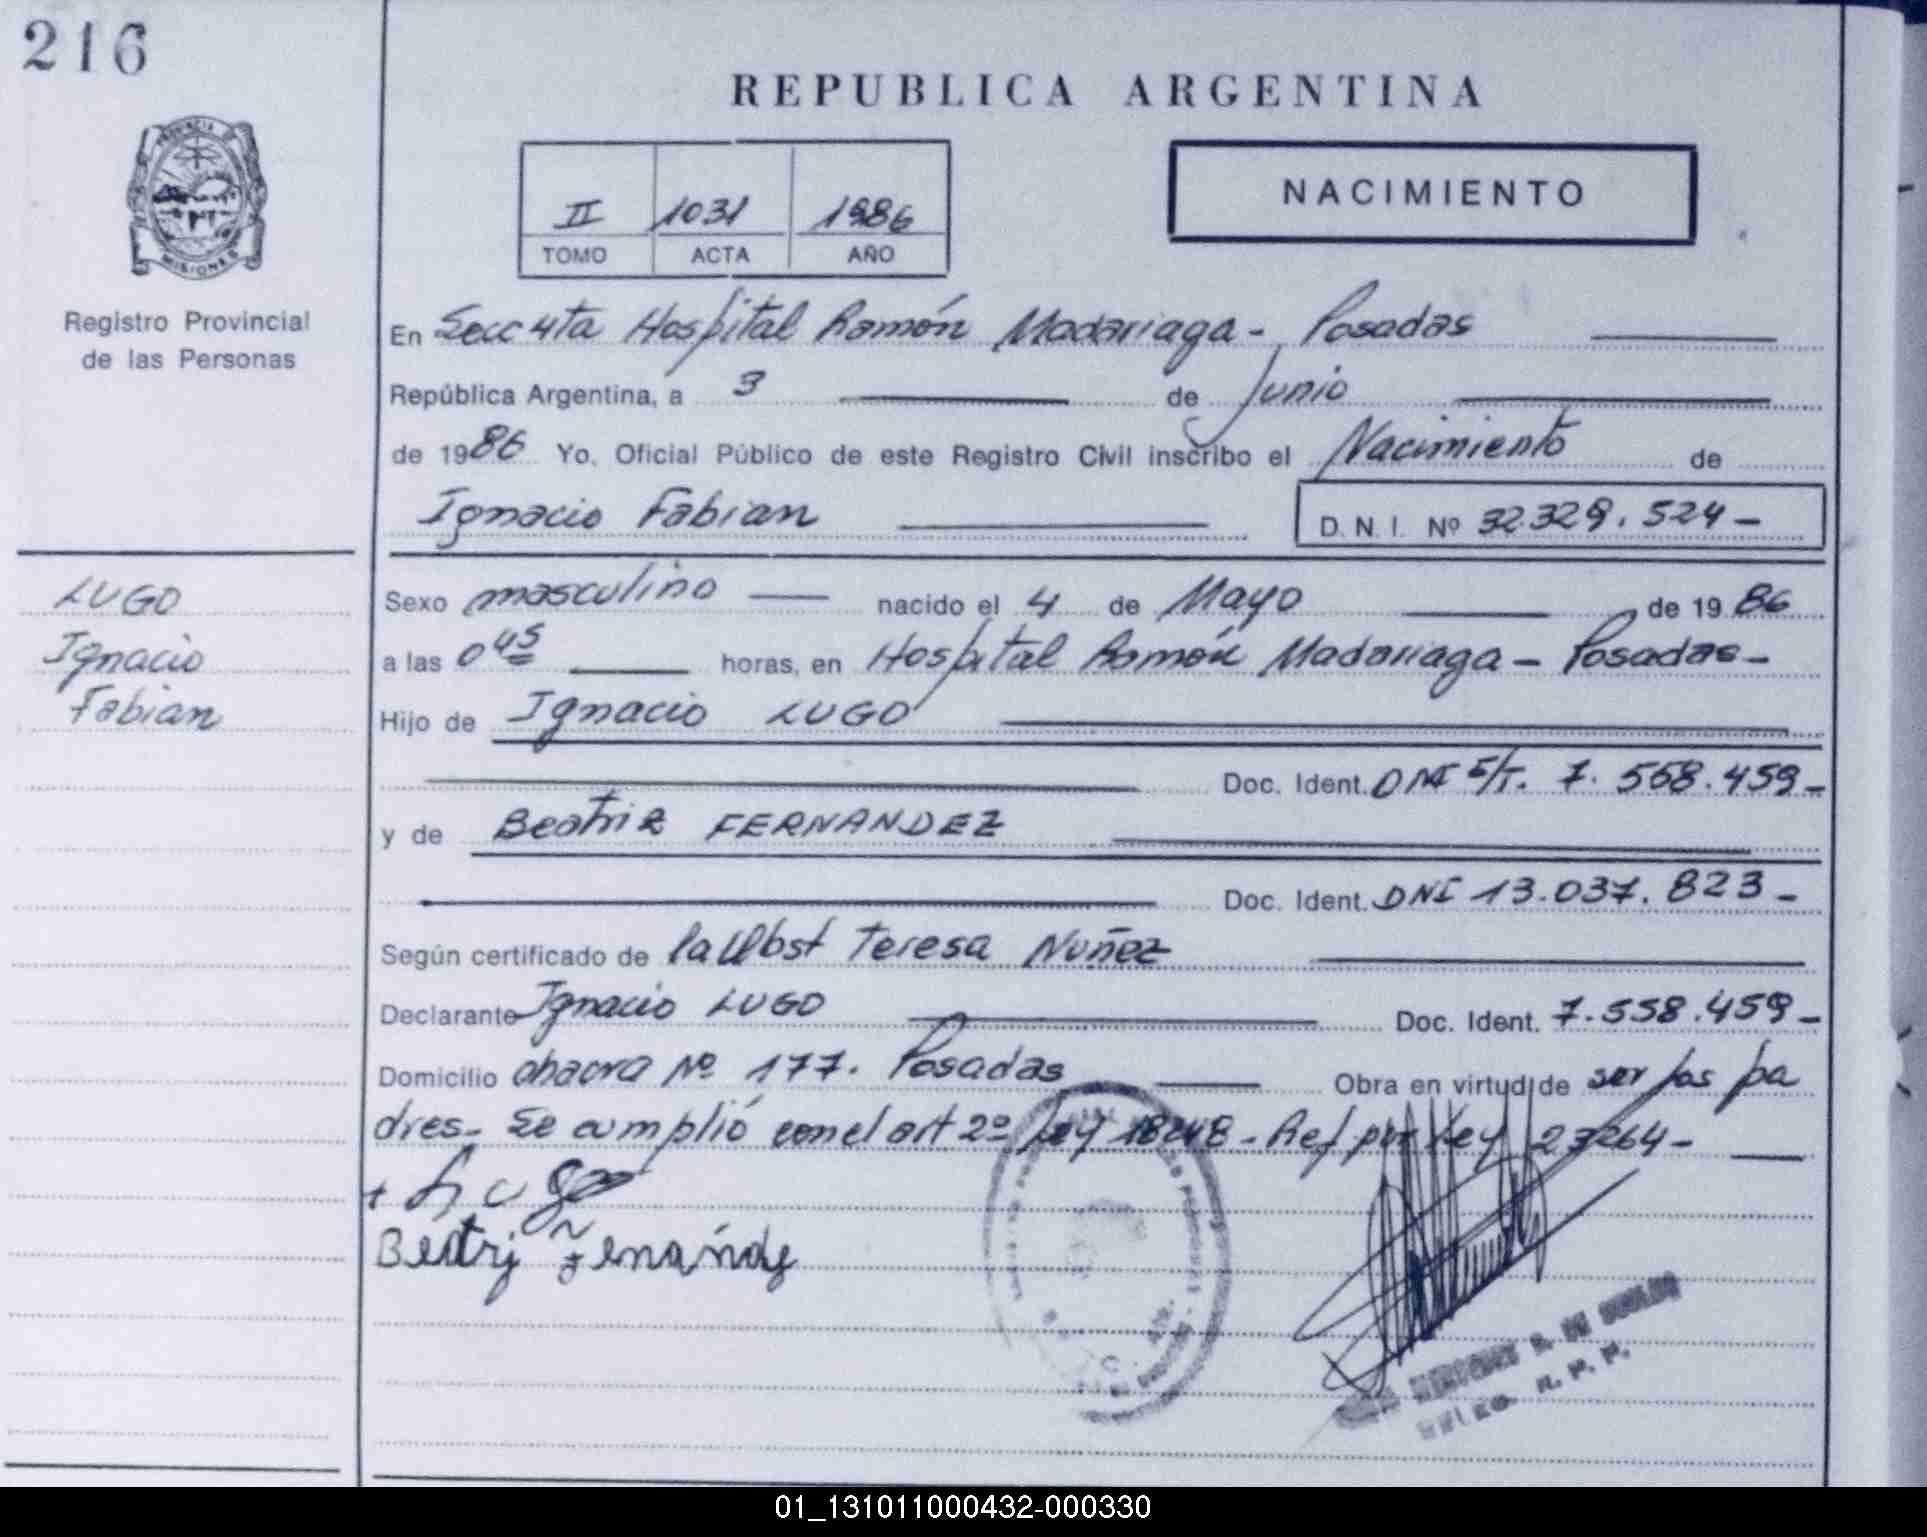 216
REPUBLICA ARGENTINA
PROVINCIA D
MISIONES
Registro Provincial
de las Personas
II 1031 1986
TOMO ACTA AÑO
NACIMIENTO
En Secc 4ta Hospital Ramón Madariaga - Posadas
República Argentina, a 3 de Junio
de 1986 Yo, Oficial Público de este Registro Civil inscribo el Nacimiento de
Ignacio Fabian D. N. I. Nº 32.329.524 -
LUGO
Ignacio
Fabian
Sexo masculino nacido el 4 de Mayo de 1986
a las 0 45 horas, en Hospital Ramón Madariaga - Posadas -
Hijo de Ignacio LUGO
Doc. Ident. DNI E/T. 7.558.459 -
y de Beatriz FERNANDEZ
Doc. Ident. DNI 13.037.823 -
Según certificado de la Obst Teresa Nuñez
Declarante Ignacio LUGO Doc. Ident. 7.558.459 -
Domicilio chacra Nº 177. Posadas Obra en virtud de ser los pa
dres - Se cumplió con el art 2º Ley 18248 - Ref por Ley 23264 -
+ Lugo
Beatriz Fernández
R. P. P.
01_131011000432-000330